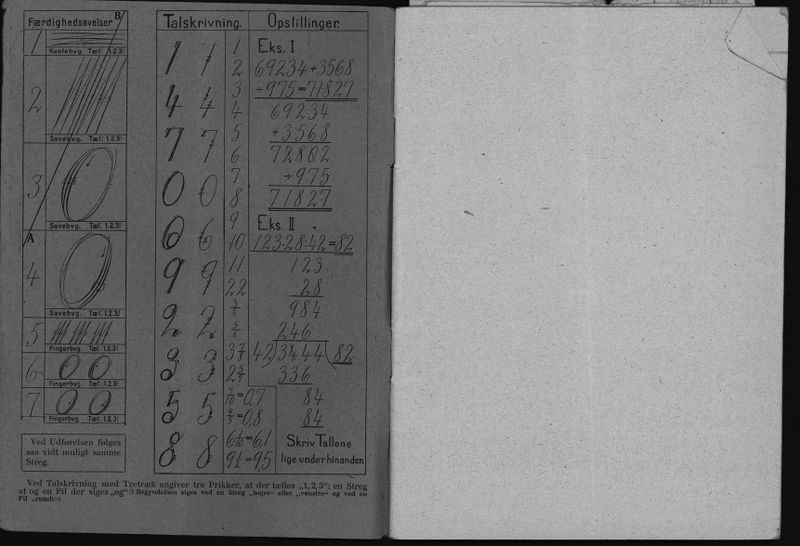 Færdighedsøvelser B
1
Kastebvg. Tæl: 1.2.3!
2
Savebvg. Tæl: 1.2.3!
3
Savebvg. Tæl. 1.2.3!
A
4
Savebvg. Tæl: 1.2.3!
5
Fingerbvg. Tæl. 1.2.3!
6
Fingerbvg. Tæl: 1.2.3!
7
Fingerbvg. Tæl: 1.2.3!
Ved Udførelsen følges
saa vidt muligt samme
Streg.
Talskrivning.
1 1
4 4
7 7
0 0
6 6
9 9
2 2
3 3
5 5
8 8
1
2
3
4
5
6
7
8
9
10
11
22
3 7/8
7/10=0,7
4/5=0,8
6 1/10=6,1
9 1/2=9,5
Opstillinger.
Eks. I
69234+3568
÷975=71827
69234
+3568
72802
÷975
71827
Eks. II
123·28:42=82
123
28
984
246
42)3444(82
336
84
84
Skriv Tallene
lige under hinanden
Ved Talskrivning med Tretræk angiver tre Prikker, at der tælles „1, 2, 3“; en Streg
at og en Pil der siges „og“ (I Begyndelsen siges ved en Streg „højre“ eller „venstre“ og ved en
Pil „rundt“)